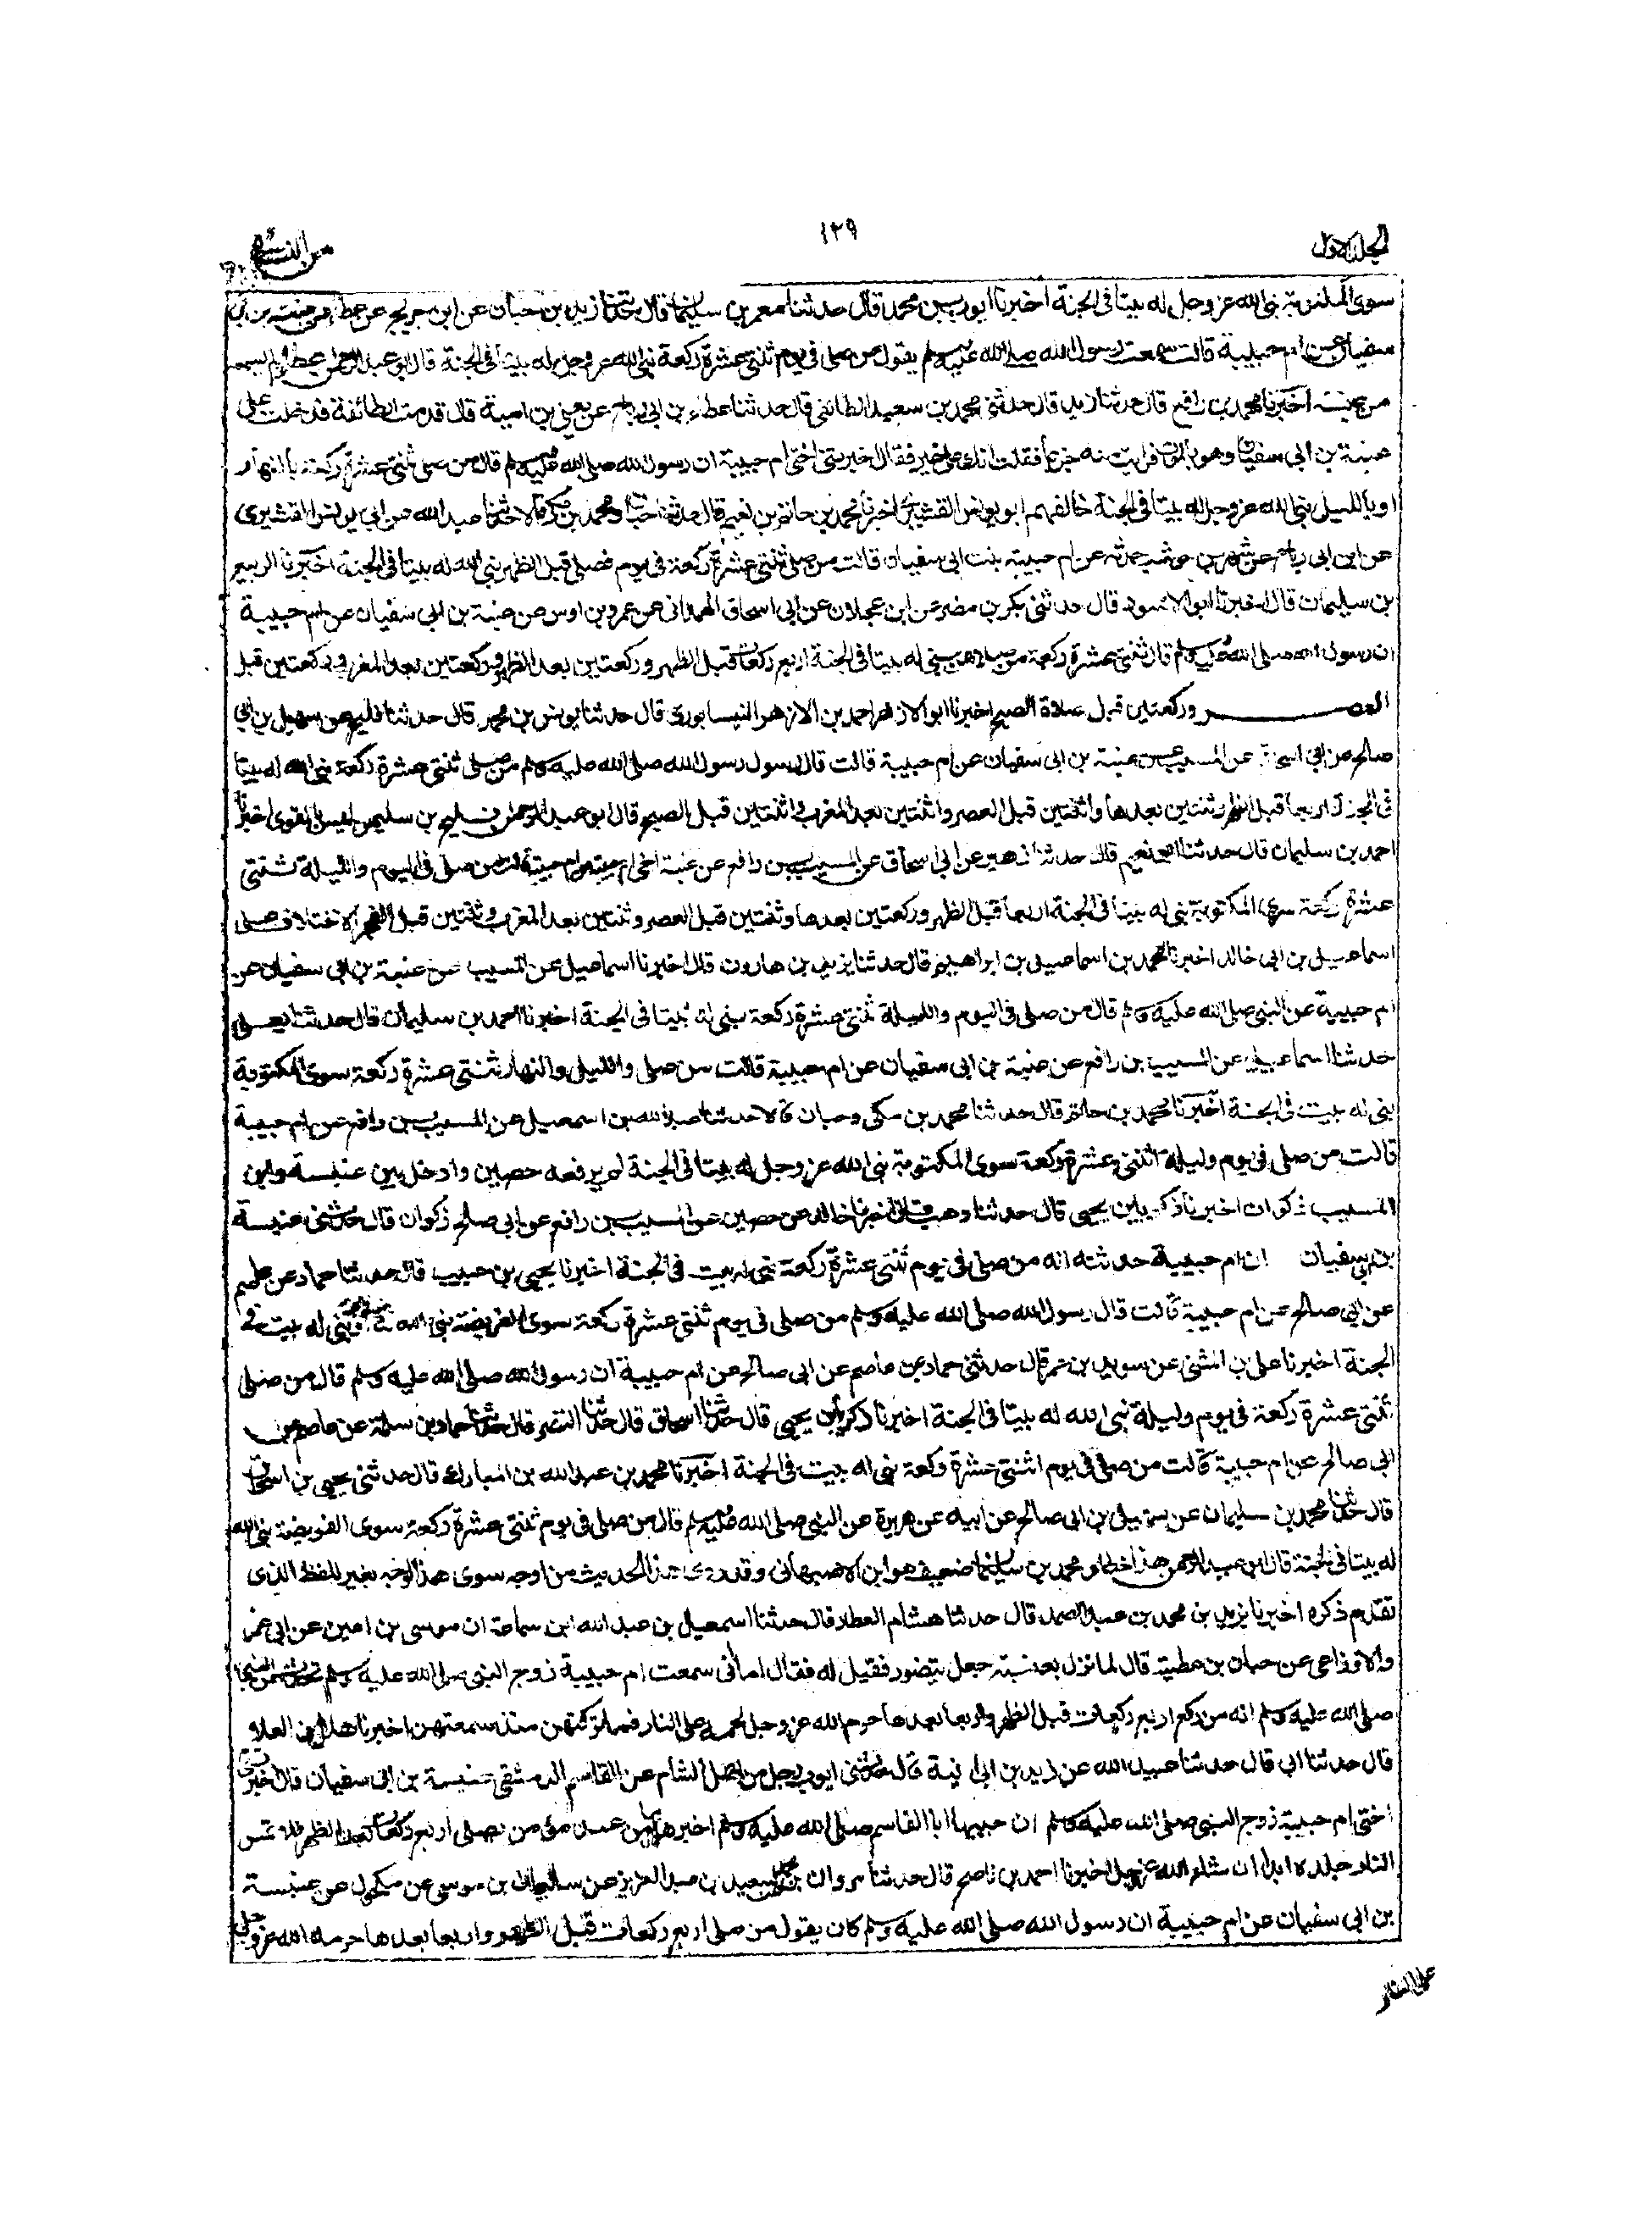 الجلد الاول
١٢٩
من النسائي
سوى المكتوبة بنى الله عز وجل له بيتا فى الجنة اخبرنا ايوب بن محمد قال حدثنا معمر بن سليمان قال حدثنا زيد بن حبان عن ابن جريج عن عطاء عن عنبسة بن ابى
سفيان عن ام حبيبة قالت سمعت رسول الله صلى الله عليه وسلم يقول من صلى فى يوم ثنتى عشرة ركعة بنى الله عز وجل له بيتا فى الجنة قال ابو عبد الرحمن عطاء لم يسمعه
من عنبسة اخبرنا محمد بن رافع قال حدثنا زيد قال حدثنى محمد بن سعيد الطائفى قال حدثنا عطاء بن ابى رباح عن يعلى بن امية قال قدمت الطائف فدخلت على
عنبسة بن ابى سفيان وهو بالموت فرايت منه جزعا فقلت انك على خير فقال اخبرتنى اختى ام حبيبة ان رسول الله صلى الله عليه وسلم قال من صلى ثنتى عشرة ركعة بالنهار
او بالليل بنى الله عز وجل له بيتا فى الجنة خالفهم ابو يونس القشيرى اخبرنا محمد بن حاتم بن نعيم قال حدثنا حبان ومحمد بن مكى قالا حدثنا عبد الله عن ابى يونس القشيرى
عن ابن ابى رباح عن شهر بن حوشب حدثه عن ام حبيبة بنت ابى سفيان قالت من صلى ثنتى عشرة ركعة فى يوم فصلى قبل الظهر بنى الله له بيتا فى الجنة اخبرنا الربيع
بن سليمان قال اخبرنا ابو الاسود قال حدثنى بكر بن مضر عن ابن عجلان عن ابى اسحاق الهمدانى عن عمرو بن اوس عن عنبسة بن ابى سفيان عن ام حبيبة
ان رسول الله صلى الله عليه وسلم قال ثنتى عشرة ركعة من صلاهن بنى له بيتا فى الجنة اربع ركعات قبل الظهر وركعتين بعد الظهر وركعتين بعد المغرب وركعتين قبل
العصر وركعتين قبل صلاة الصبح اخبرنا ابو الازهر احمد بن الازهر النيسابورى قال حدثنا يونس بن محمد قال حدثنا فليح عن سهيل بن ابى
صالح عن ابى اسحق عن المسيب عن عنبسة بن ابى سفيان عن ام حبيبة قالت قال رسول الله صلى الله عليه وسلم من صلى ثنتى عشرة ركعة بنى الله له بيتا
فى الجنة اربعا قبل الظهر وثنتين بعدها واثنتين قبل العصر واثنتين بعد المغرب واثنتين قبل الصبح قال ابو عبد الرحمن فليح بن سليمن ليس بالقوى اخبرنا
احمد بن سليمان قال حدثنا ابو نعيم قال حدثنا زهير عن ابى اسحاق عن المسيب بن رافع عن عنبسة اخى ام حبيبة عن ام حبيبة قالت من صلى فى اليوم والليلة ثنتى
عشرة ركعة سوى المكتوبة بنى له بيتا فى الجنة اربعا قبل الظهر وركعتين بعدها وثنتين قبل العصر وثنتين بعد المغرب وثنتين قبل الفجر الاختلاف على
اسماعيل بن ابى خالد اخبرنا محمد بن اسماعيل بن ابراهيم قال حدثنا يزيد بن هارون قال اخبرنا اسماعيل عن المسيب عن عنبسة بن ابى سفيان عن
ام حبيبة عن النبى صلى الله عليه وسلم قال من صلى فى اليوم والليلة ثنتى عشرة ركعة بنى له بيتا فى الجنة اخبرنا احمد بن سليمان قال حدثنا يعلى
حدثنا اسماعيل عن المسيب بن رافع عن عنبسة بن ابى سفيان عن ام حبيبة قالت من صلى والليل والنهار ثنتى عشرة ركعة سوى المكتوبة
بنى له بيت فى الجنة اخبرنا محمد بن حاتم قال حدثنا محمد بن مكى وحبان قالا حدثنا عبد الله بن اسمعيل عن المسيب بن رافع عن ام حبيبة
قالت من صلى فى يوم وليلة اثنتى عشرة ركعة سوى المكتوبة بنى الله عز وجل له بيتا فى الجنة لم يرفعه حصين وادخل بين عنبسة وابن
المسيب ذكوان اخبرنا زكريا بن يحيى قال حدثنا وهب قال اخبرنا خالد عن حصين عن المسيب بن رافع عن ابى صالح ذكوان قال حدثنى عنبسة
بن ابى سفيان ان ام حبيبة حدثته انه من صلى فى يوم ثنتى عشرة ركعة بنى له بيت فى الجنة اخبرنا يحيى بن حبيب قال حدثنا حماد عن عاصم
عن ابى صالح عن ام حبيبة قالت قال رسول الله صلى الله عليه وسلم من صلى فى يوم ثنتى عشرة ركعة سوى الفريضة بنى الله له بنى له بيت فى
الجنة اخبرنا على بن المثنى عن سويد بن عمرو قال حدثنى حماد عن عاصم عن ابى صالح عن ام حبيبة ان رسول الله صلى الله عليه وسلم قال من صلى
ثنتى عشرة ركعة فى يوم وليلة بنى الله له بيتا فى الجنة اخبرنا زكريا بن يحيى قال حدثنا اسحاق قال حدثنا النضر قال حدثنا حماد بن سلمة عن عاصم عن
ابى صالح عن ام حبيبة قالت من صلى فى يوم اثنتى عشرة ركعة بنى له بيت فى الجنة اخبرنا محمد بن عبد الله بن المبارك قال حدثنى يحيى بن اسحاق
قال حدثنا محمد بن سليمان عن سهيل بن ابى صالح عن ابيه عن هريرة عن النبى صلى الله عليه وسلم قال من صلى فى يوم ثنتى عشرة ركعة سوى الفريضة بنى الله
له بيتا فى الجنة قال ابو عبد الرحمن هذا خطا ومحمد بن سليمان ضعيف هو ابن الاصبهانى وقد روى هذا الحديث من اوجه سوى هذا الوجه بغير اللفظ الذى
تقدم ذكره اخبرنا يزيد بن محمد بن عبد الصمد قال حدثنا هشام العطار قال حدثنا اسمعيل بن عبد الله ابن سماعة ان موسى بن اعين عن ابى عمر
والاوزاعى عن حسان بن عطية قال لما نزل بعنبسة جعل يتضور فقيل له فقال اما انى سمعت ام حبيبة زوج النبى صلى الله عليه وسلم تحدث عن النبى
صلى الله عليه وسلم انه من ركع اربع ركعات قبل الظهر واربعا بعدها حرم الله عز وجل لحمه على النار فما تركتهن منذ سمعتهن اخبرنا هلال بن العلاء
قال حدثنا ابى قال حدثنا عبيد الله عن زيد بن ابى انيسة قال حدثنى ايوب رجل من اهل الشام عن القاسم الدمشقى عنبسة بن ابى سفيان قال اخبرتنى
اختى ام حبيبة زوج النبى صلى الله عليه وسلم ان حبيبها ابا القاسم صلى الله عليه وسلم اخبرها ما من عبد مؤمن يصلى اربع ركعات بعد الظهر فلا تمس
النار جلده ابدا ان شاء الله عز وجل اخبرنا احمد بن ناصح قال حدثنا مروان بن محمد عن سعيد بن عبد العزيز عن سليمان بن موسى عن مكحول عن عنبسة
بن ابى سفيان عن ام حبيبة ان رسول الله صلى الله عليه وسلم كان يقول من صلى اربع ركعات قبل الظهر واربعا بعدها حرمه الله عز وجل
على النار